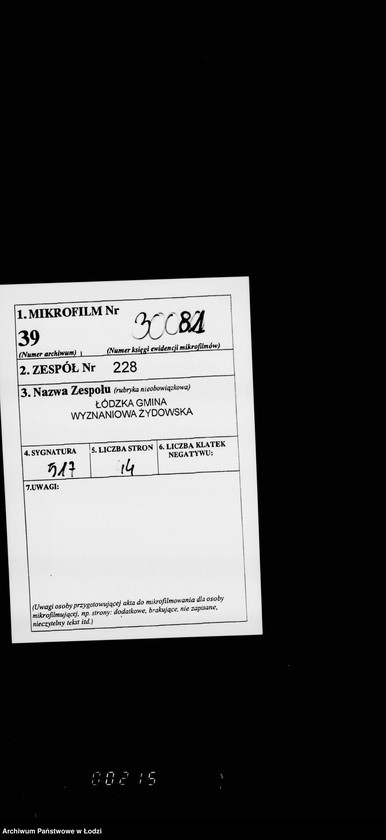 1. MIKROFILM Nr
39 30081
(Numer archiwum) (Numer księgi ewidencji mikrofilmów)
2. ZESPÓŁ Nr 228
3. Nazwa Zespołu (rubryka nieobowiązkowa)
ŁÓDZKA GMINA
WYZNANIOWA ŻYDOWSKA
4. SYGNATURA 5. LICZBA STRON 6. LICZBA KLATEK
NEGATYWU:
517 14
7.UWAGI:
(Uwagi osoby przygotowującej akta do mikrofilmowania dla osoby
mikrofilmującej, np. strony: dodatkowe, brakujące, nie zapisane,
nieczytelny tekst itd.)
00215
Archiwum Państwowe w Łodzi